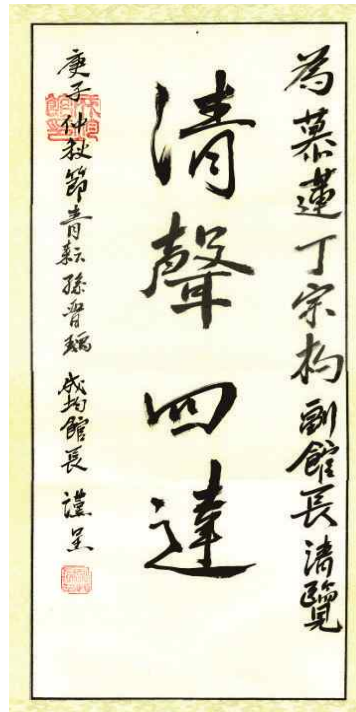 為慕蓮丁宗杓副館長清覽
清聲四達
庚子仲秋節青耘孫晋瑀 成均館長 謹呈